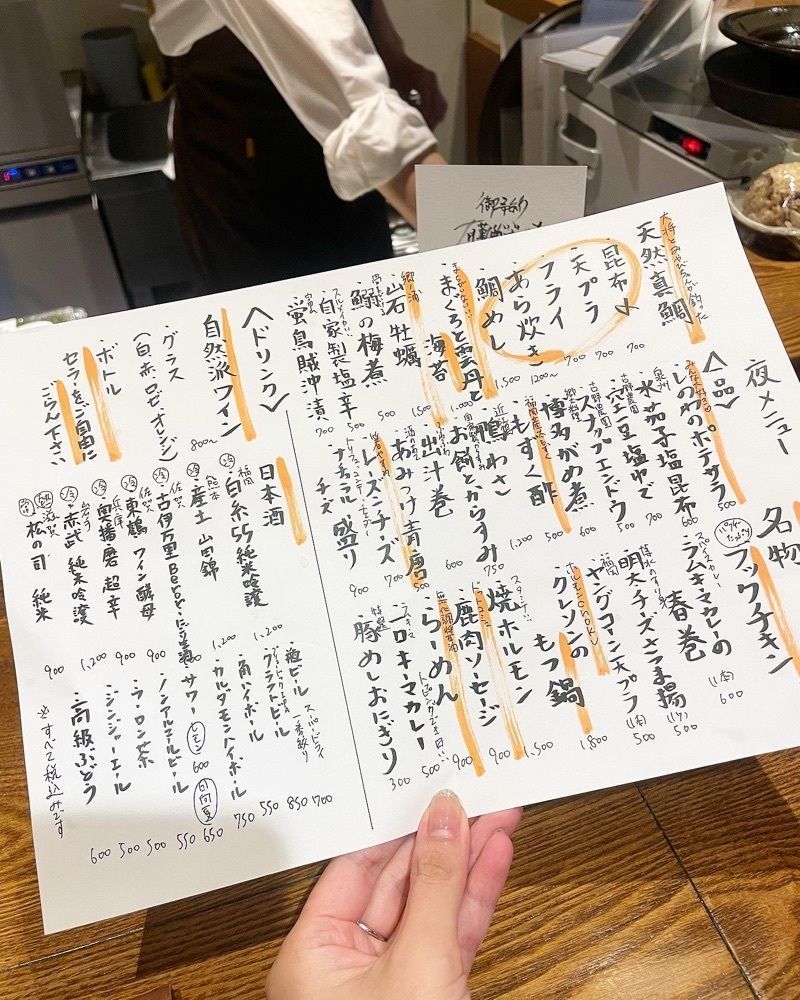 夜メニュー
天然真鯛
昆布〆 700
天プラ 700
フライ 700
あら炊き 1200~
鯛めし 1,500
まぐろと雲丹と
海苔 1,000
山石牡蠣 1,500
鰯の梅煮 500
自家製塩辛 500
富山
蛍烏賊沖漬 700
一品
みんな大好き
しのわのポテサラ 500
泉州
水茄子塩昆布 600
吉野農園
空豆塩ゆで 700
吉野農園
スナップエンドウ 500
郷土料理
博多がめ煮
福岡産
もずく酢 500
近鴨
鴨わさ 1,200
お餅とからすみ 750
出汁巻 600
あみつけ青唐 500
レーズンチーズ 700
ナチュラル盛り 900
チーズ
名物
フックチキン
スパイスカレー
ラムキーマカレーの
春巻 (1本) 600
明太チーズさつま揚 (1ケ) 500
福岡
ヤングコーン天プラ (1本) 500
クレソンの
もつ鍋 1.800
スタミナ
焼ホルモン 1.500
鹿肉ソーセージ 900
らーめん 900
キーマカレー 500
豚めしおにぎり 300
〈ドリンク〉
自然派ワイン
グラス 800~
(白.赤.ロゼ.オレンジ)
ボトル
セラーをご自由に
ごらん下さい
日本酒
福岡
冷 白糸55 純米吟醸 1,200
熊本
冷 産土 山田錦 1,200
佐賀
冷 古伊万里
佐賀
冷 東鶴 ワイン酵母 900
兵庫
冷 奥播磨 超辛 900
岩手
冷 赤武 純米吟醸 1,200
滋賀
松の司 純米 900
瓶ビール
スーパードライ 700
一番絞り
クラフトビール 850
角ハイボール 550
カルダモンハイボール 750
サワー レモン 600 日向夏 650
ノンアルコールビール 550
ウーロン茶 500
ジンジャーエール 500
高級ぶどう 600
※すべて税込みです